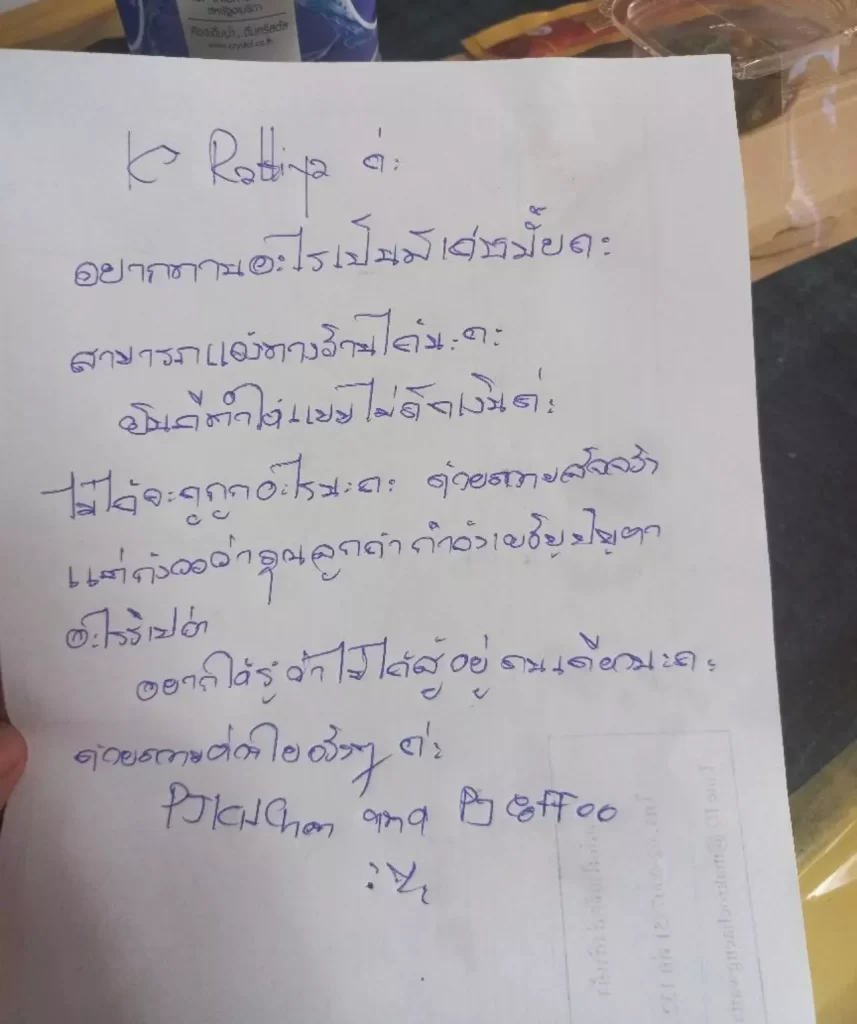 สหรัฐอเมริกา
www.crystal.co.th
K Rattiya ค่ะ
อยากทานอะไรเป็นพิเศษมั้ยคะ
สามารถแจ้งทางร้านได้นะคะ
ยินดีทำให้แบบไม่คิดเงินค่ะ
ไม่ได้จะดูถูกอะไรนะคะ ด้วยความสัจจริง
แต่กังวลว่าคุณลูกค้า กำลังเผชิญปัญหา
อะไรรึเปล่า
อยากให้รู้ว่าไม่ได้สู้อยู่ คนเดียวนะคะ
ด้วยความห่วงใยจริงๆ ค่ะ
PJ Kitchen and PJ Coffee